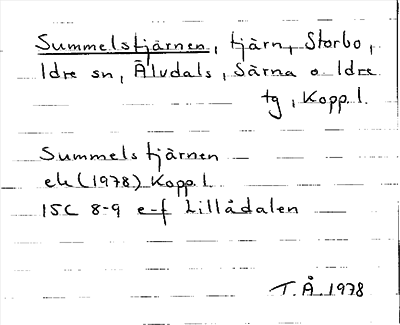 Summelstjärnen, tjärn, Storbo,
Idre sn, Älvdals, Särna o Idre
tg, Kopp. l.
Summelstjärnen
ek (1978) Kopp. l.
15C 8-9 e-f Lillådalen
T. Å. 1978